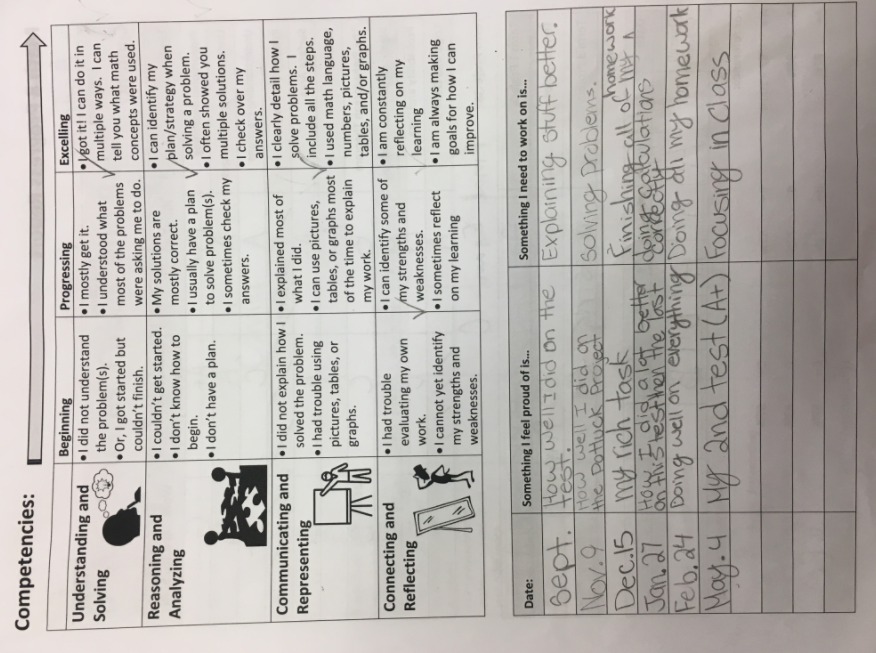 Competencies:
Beginning
Progressing
Excelling
Understanding and
Solving
• I did not understand
the problem(s).
• Or, I got started but
couldn't finish.
• I mostly get it.
• I understood what
most of the problems
were asking me to do.
• I got it! I can do it in
multiple ways. I can
tell you what math
concepts were used.
Reasoning and
Analyzing
• I couldn't get started.
• I don't know how to
begin.
• I don't have a plan.
• My solutions are
mostly correct.
• I usually have a plan
to solve problem(s).
• I sometimes check my
answers.
• I can identify my
plan/strategy when
solving a problem.
• I often showed you
multiple solutions.
• I check over my
answers.
Communicating and
Representing
• I did not explain how I
solved the problem.
• I had trouble using
pictures, tables, or
graphs.
• I explained most of
what I did.
• I can use pictures,
tables, or graphs most
of the time to explain
my work.
• I clearly detail how I
solve problems. I
include all the steps.
• I used math language,
numbers, pictures,
tables, and/or graphs.
Connecting and
Reflecting
• I had trouble
evaluating my own
work.
• I cannot yet identify
my strengths and
weaknesses.
• I can identify some of
my strengths and
weaknesses.
• I sometimes reflect
on my learning
• I am constantly
reflecting on my
learning
• I am always making
goals for how I can
improve.
Date:
Something I feel proud of is...
Something I need to work on is...
Sept.
How well I did on the
test.
Explaining stuff better.
Nov. 9
How well I did on
the Potluck Project
Solving Problems.
Dec. 15
my rich task
Finishing all of my ^ homework
Jan. 27
How I did a lot better
on this test then the last
doing calculations
correctly
Feb. 24
Doing well on everything
Doing all my homework
May. 4
My 2nd test (A+)
Focusing in class